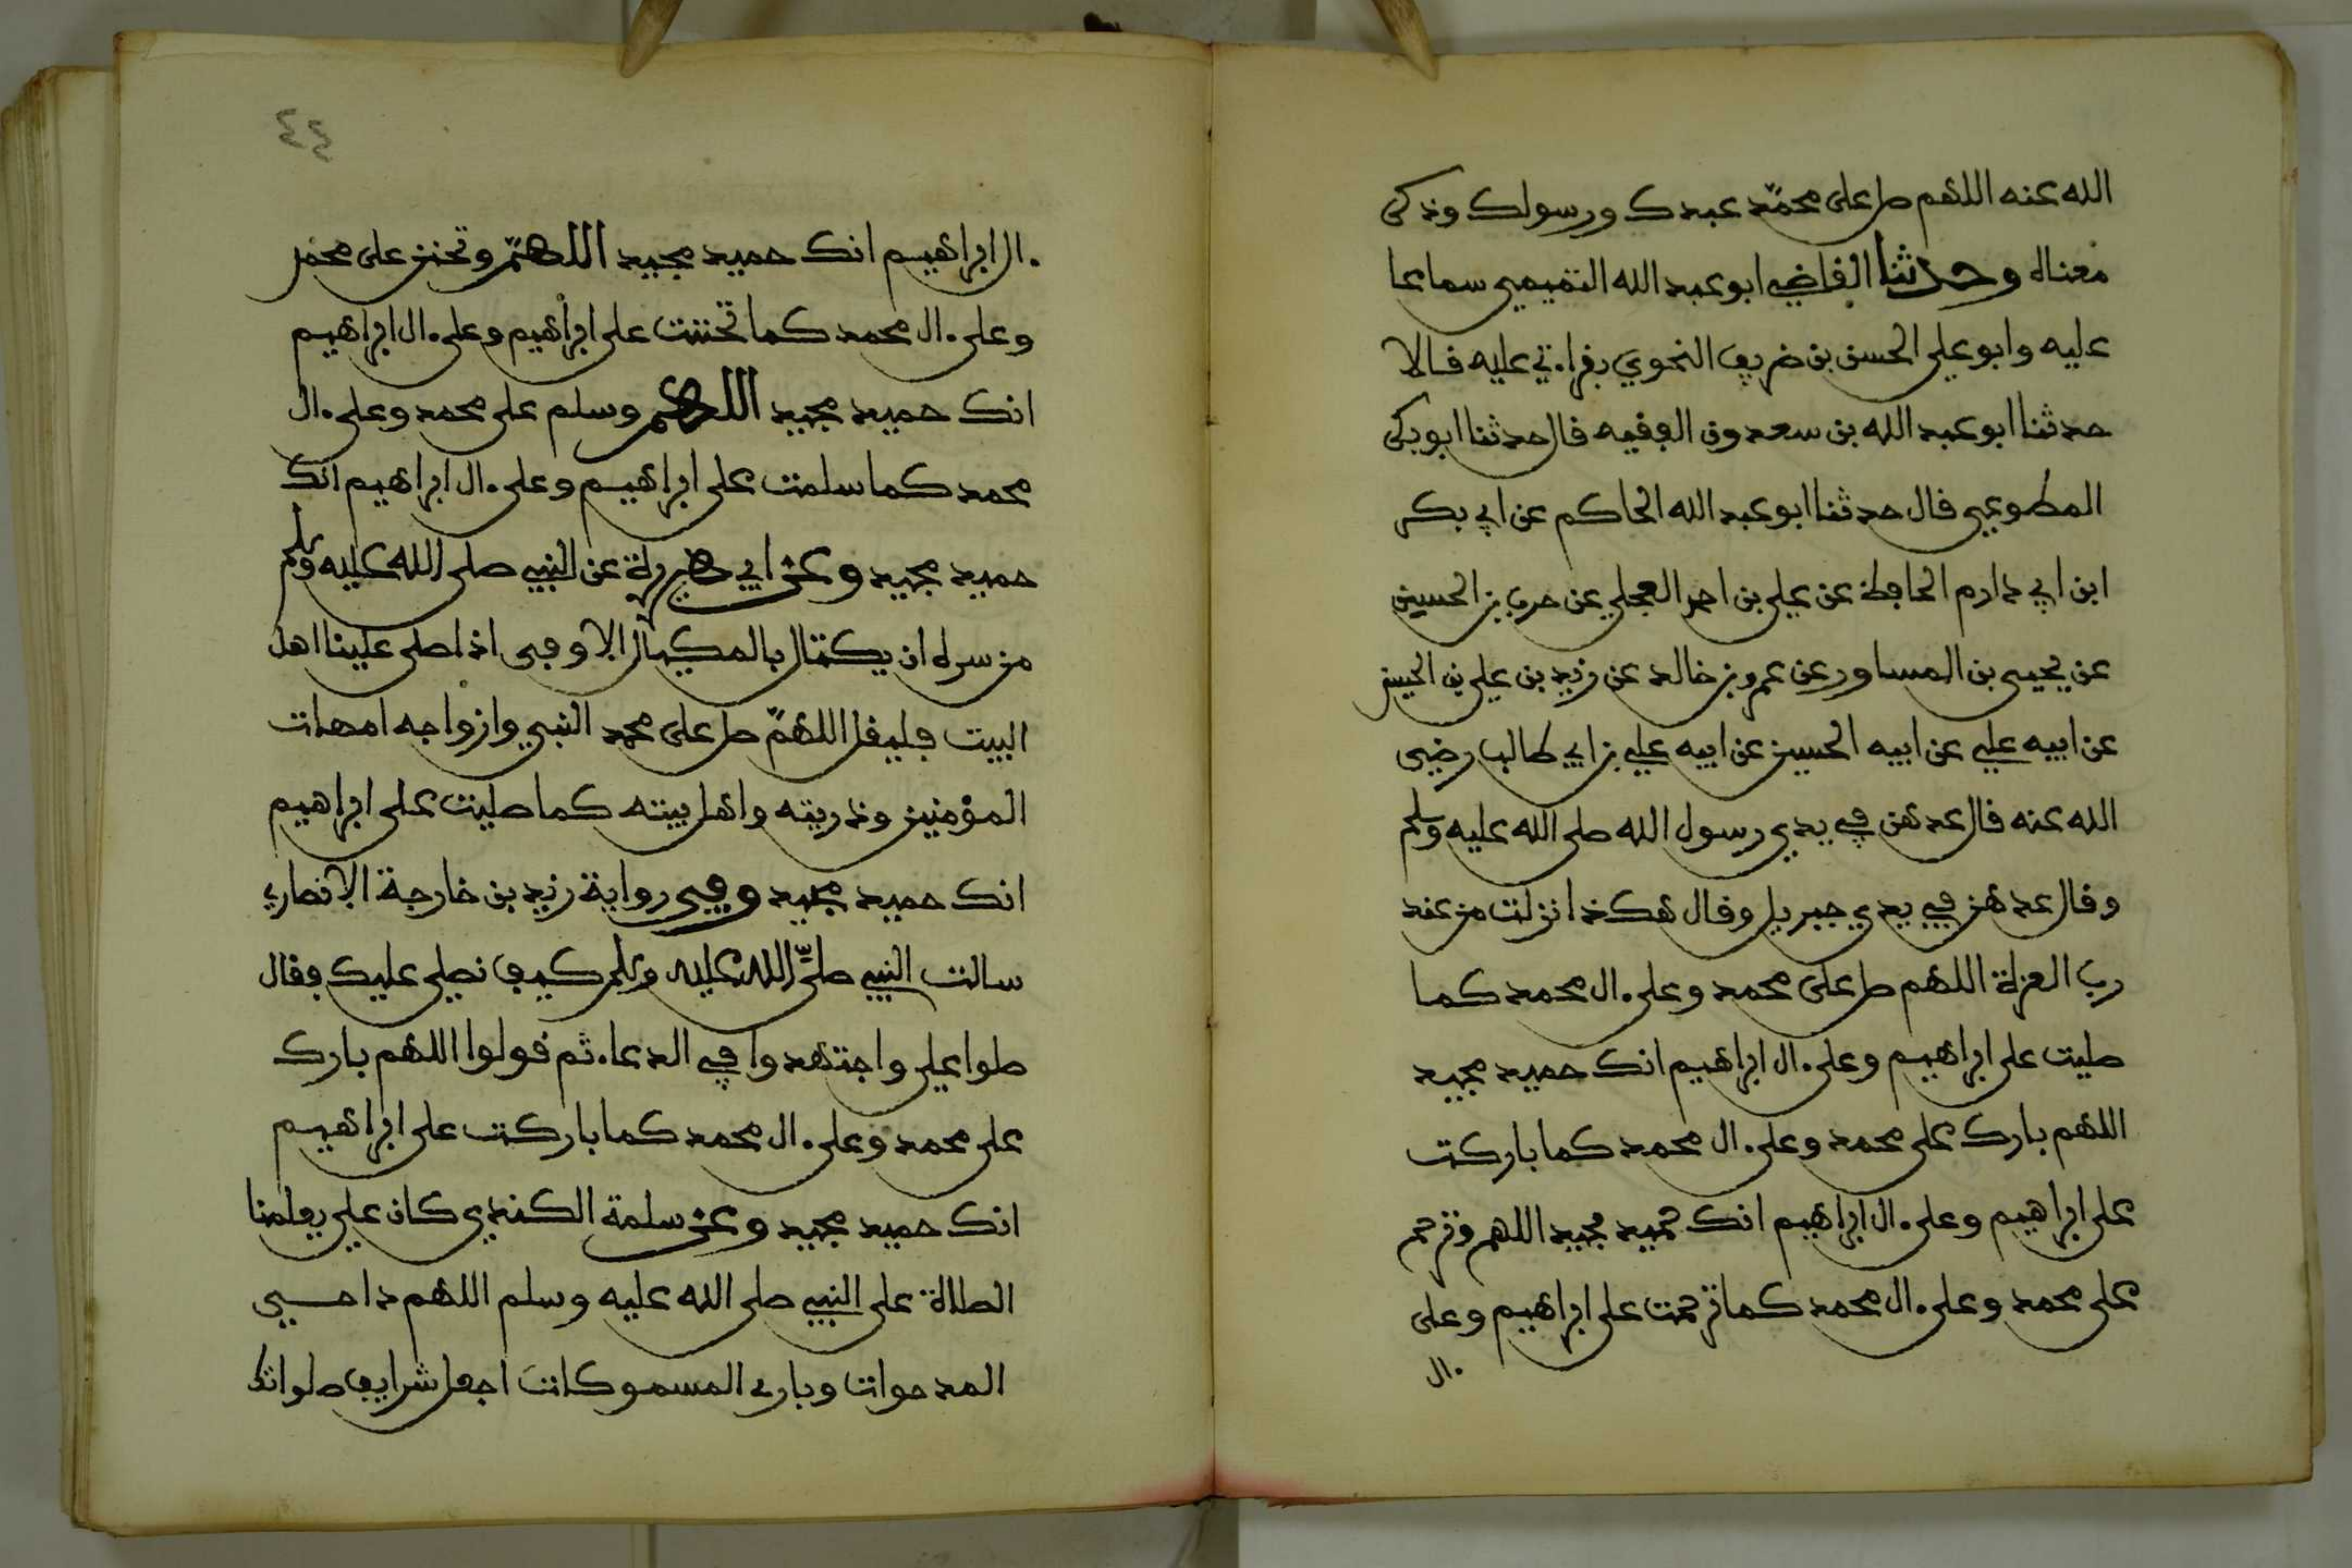 الله عنه اللهم صل على محمد عبدك ورسولك وذكر
معناه وحدثنا القاضي ابو عبد الله التميمي سماعا
عليه وابو علي الحسن بن ضريف النحوي بقراءتي عليه قالا
حدثنا ابو عبد الله بن سعدون الفقيه قال حدثنا ابو بكر
المطوعي قال حدثنا ابو عبد الله الحاكم عن ابي بكر
ابن ابي دارم الحافظ عن علي بن احمد العجلي عن حرب بن الحسين
عن يحيى بن المساور عن عمرو بن خالد عن زيد بن علي بن الحسين
عن ابيه علي عن ابيه الحسين عن ابيه علي بن ابي طالب رضي
الله عنه قال عدهن في يدي رسول الله صلى الله عليه وسلم
وقال عدهن في يدي جبريل وقال هكذا نزلت من عند
رب العزة اللهم صل على محمد وعلى ءال محمد كما
صليت على ابراهيم وعلى ءال ابراهيم انك حميد مجيد
اللهم بارك على محمد وعلى ءال محمد كما باركت
على ابراهيم وعلى ءال ابراهيم انك حميد مجيد اللهم وترحم
على محمد وعلى ءال محمد كما ترحمت على ابراهيم وعلى
ءال
٤٤
ءال ابراهيم انك حميد مجيد اللهم وتحنن على محمد
وعلى ءال محمد كما تحننت على ابراهيم وعلى ءال ابراهيم
انك حميد مجيد اللهم وسلم على محمد وعلى ءال
محمد كما سلمت على ابراهيم وعلى ءال ابراهيم انك
حميد مجيد وعن ابي هريرة عن النبي صلى الله عليه وسلم
من سره ان يكتال بالمكيال الاوفى اذا صلى علينا اهل
البيت فليقل اللهم صل على محمد النبي وازواجه امهات
المؤمنين وذريته واهل بيته كما صليت على ابراهيم
انك حميد مجيد وفي رواية زيد بن خارجة الانصاري
سالت النبي صلى الله عليه وسلم كيف نصلي عليك فقال
صلوا علي واجتهدوا في الدعاء ثم قولوا اللهم بارك
على محمد وعلى ءال محمد كما باركت على ابراهيم
انك حميد مجيد وعن سلمة الكندي كان علي يعلمنا
الصلاة على النبي صلى الله عليه وسلم اللهم داحي
المدحوات وبارئ المسموكات اجعل شرايف صلواتك